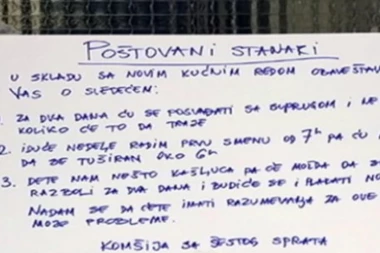 POŠTOVANI STANARI
U SKLADU SA NOVIM KUĆNIM REDOM OBAVEŠTAV
VAS O SLEDEĆEM:
ZA DVA DANA ĆU SE POSVAĐATI SA SUPRUGOM I NE
KOLIKO ĆE TO DA TRAJE
2. IDUĆE NEDELJE RADIM PRVU SMENU OD 7h PA ĆU
DA SE TUŠIRAM OKO 6h
3. DETE NAM NEŠTO KAŠLJUCA PA ĆE MOŽDA DA
RAZBOLI ZA DVA DANA I BUDIĆE SE I PLAKATI NO
NADAM SE DA ĆETE IMATI RAZUMEVANJA ZA OVE
MOJE PROBLEME.
KOMŠIJA SA ŠESTOG SPRATA